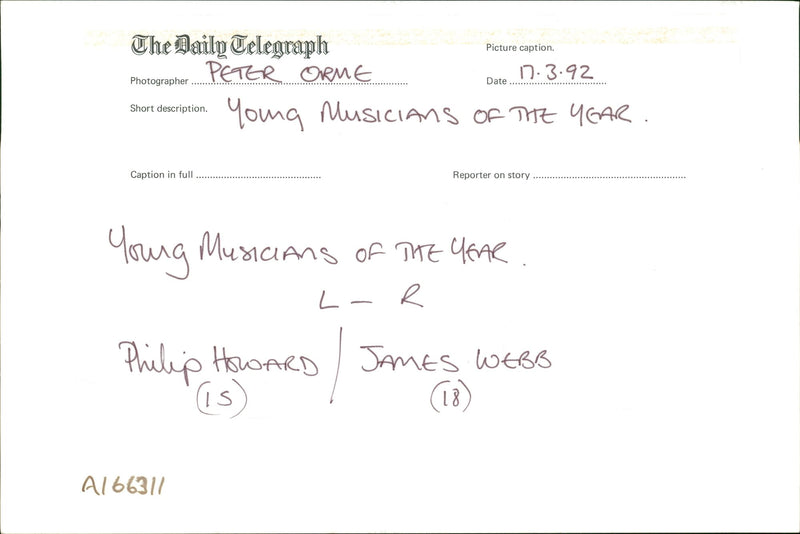 The Daily Telegraph
Picture caption.
Photographer PETER ORME
Date 17.3.92
Short description. Young Musicians OF THE YEAR.
Caption in full
Reporter on story
Young Musicians OF THE YEAR.
L - R
Philip HOWARD / JAMES WEBB
(15) (18)
A166311